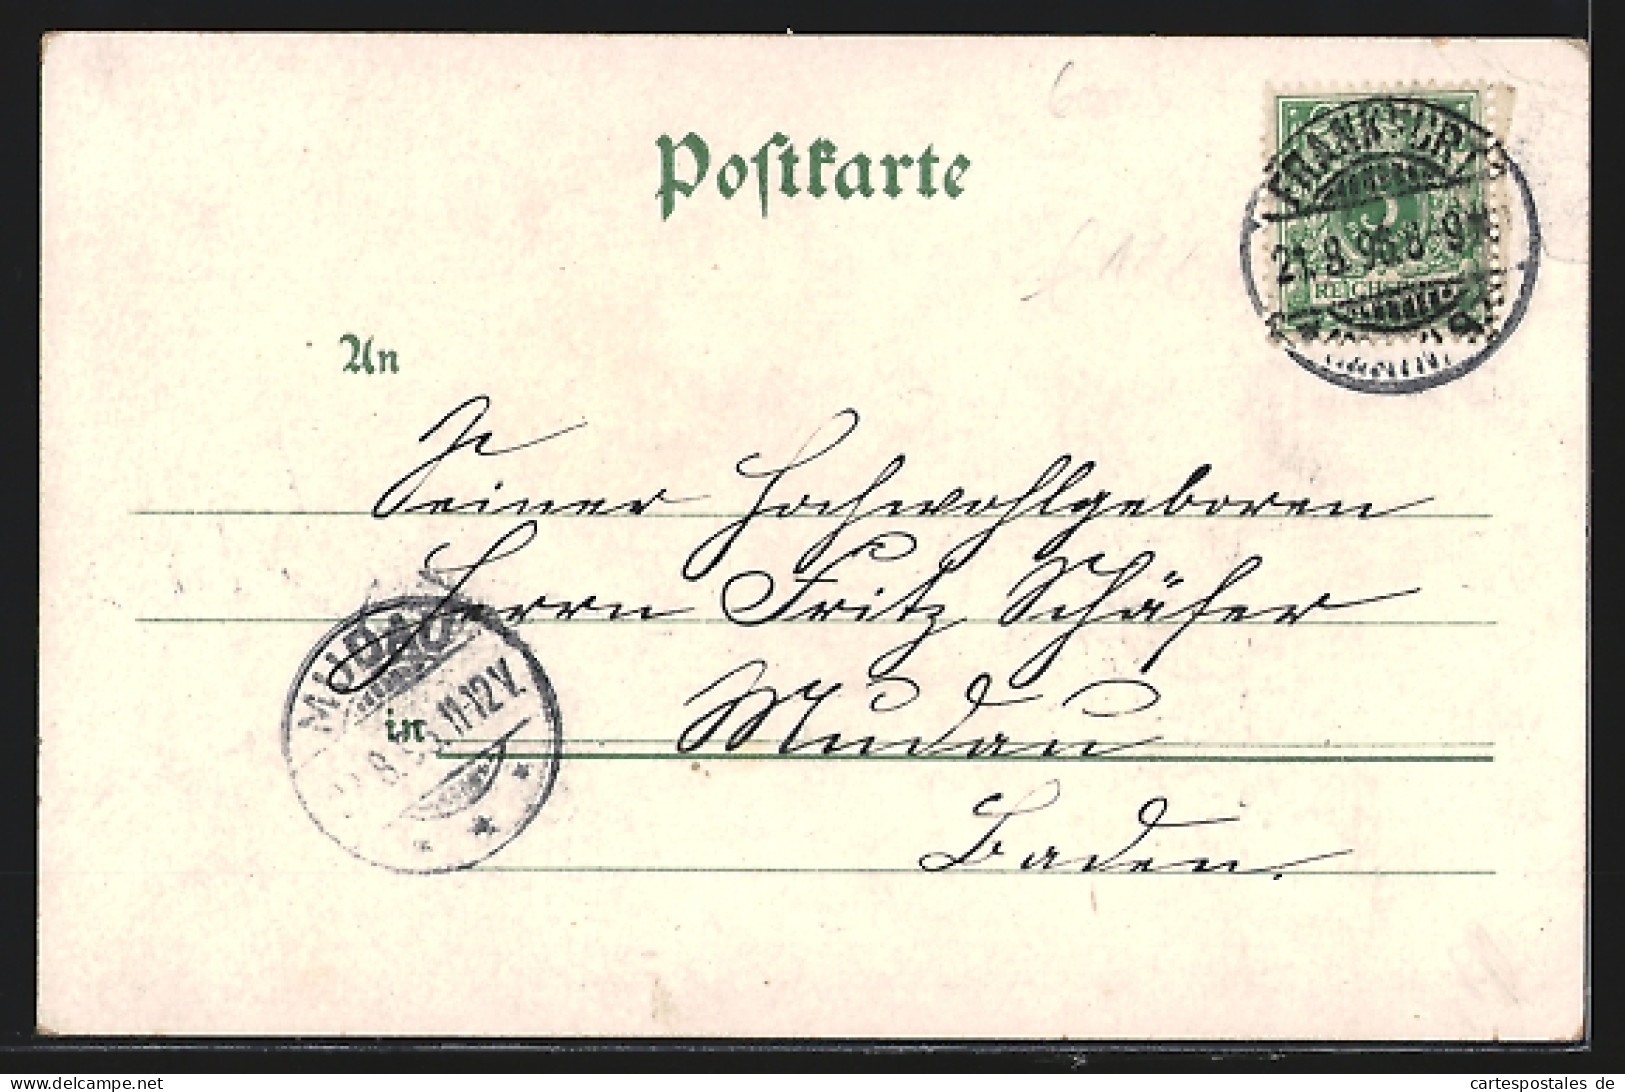 Postkarte
FRANKFURT
21.8.96. 8-9
5
REICH
An
Sr
Seiner Hochwohlgeboren
Herrn Fritz Schäfer
MUDAU
8. 96. 11-12V.
in
Mudau
Baden.
cartespostales de
© cartespostales.de